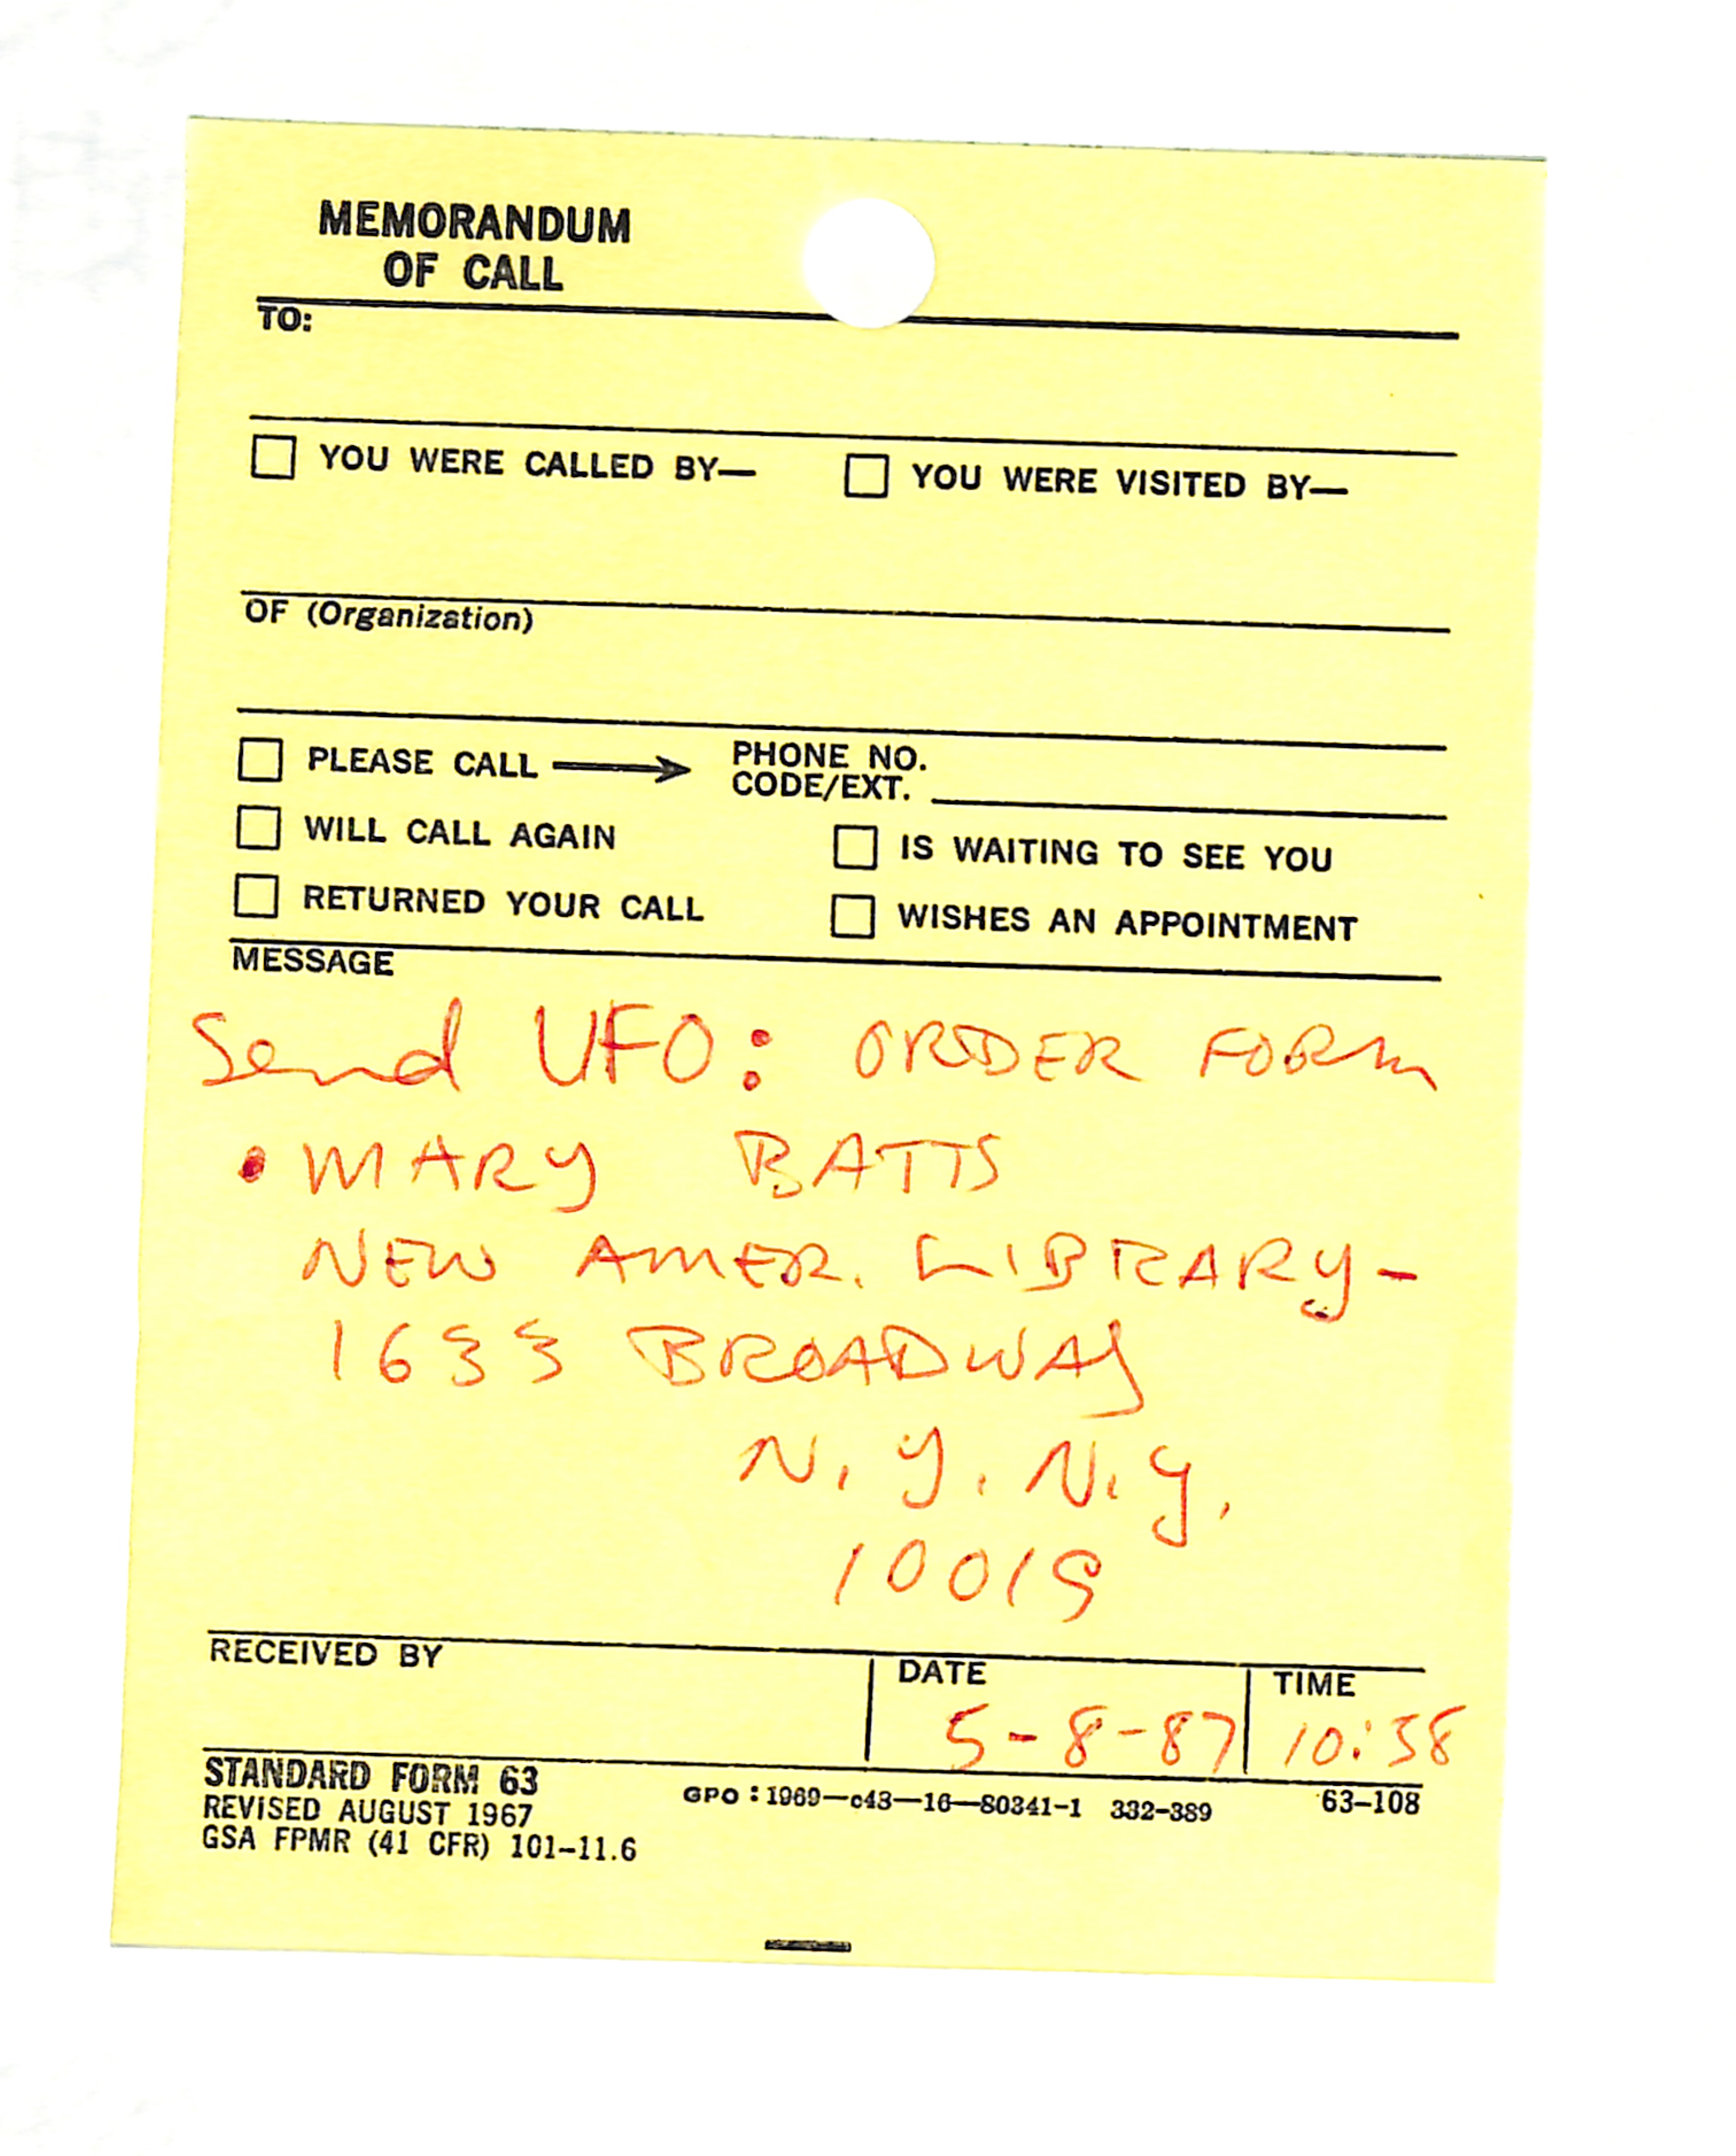 MEMORANDUM
OF CALL
TO:
YOU WERE CALLED BY— YOU WERE VISITED BY—
OF (Organization)
PLEASE CALL → PHONE NO.
CODE/EXT.
WILL CALL AGAIN IS WAITING TO SEE YOU
RETURNED YOUR CALL WISHES AN APPOINTMENT
MESSAGE
Send UFO: ORDER FORM
• MARY BATTS
NEW AMER. LIBRARY-
1633 BROADWAY
N.Y. N.Y.
10019
RECEIVED BY DATE TIME
5-8-87 10:38
STANDARD FORM 63 GPO : 1969—c43—16—80341-1 332-389 63-108
REVISED AUGUST 1967
GSA FPMR (41 CFR) 101-11.6